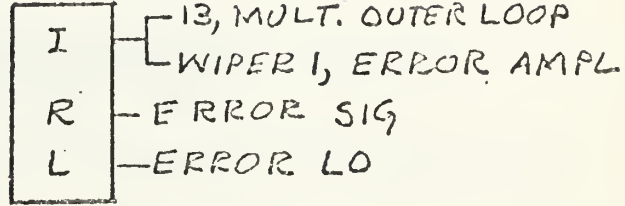 I
13, MULT. OUTER LOOP
WIPER 1, ERROR AMPL
R - ERROR SIG
L - ERROR LO